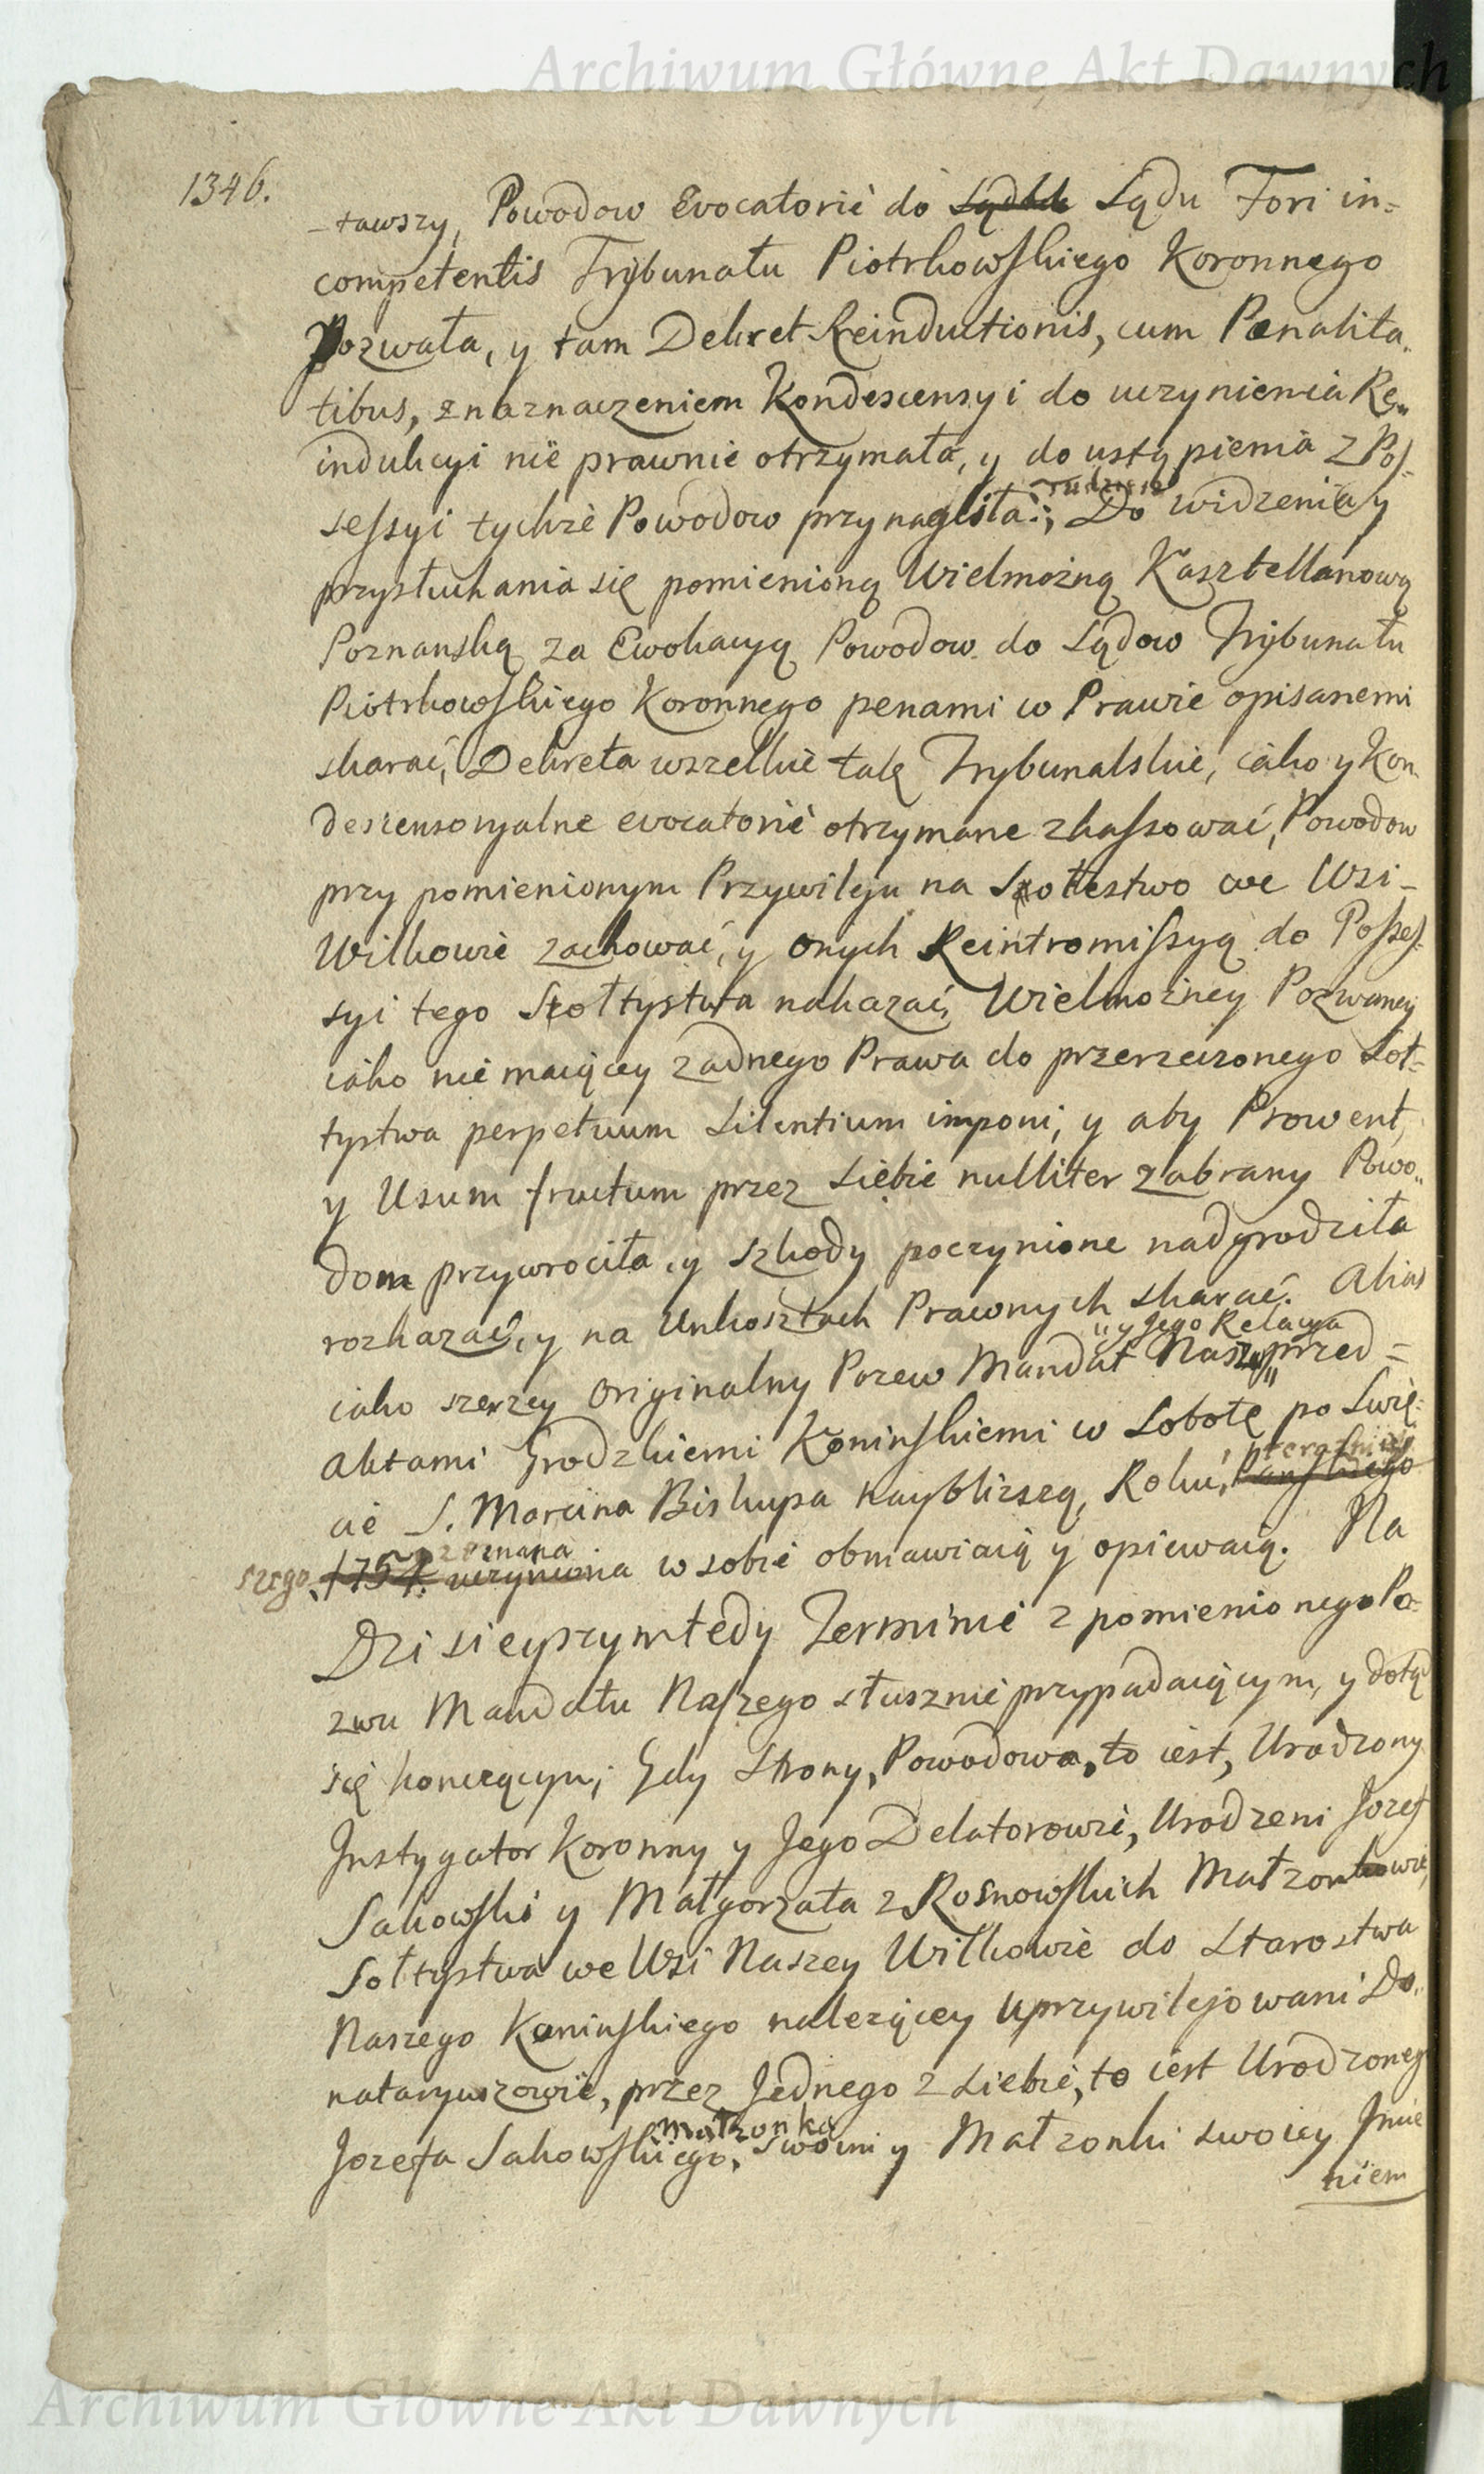 Archiwum Główne Akt Dawnych
1346.
-tawszy, Powodow Evocatorie do Sądu Fori in=
competentis Trybunału Piotrkowskiego Koronnego
Pozwała, y tam Dekret Reinductionis, cum Pænalita-
tibus, z naznaczeniem Kondescensyi do uczynienia Re„
indukcyi nie prawnie otrzymała, y do ustąpienia z Pos=
sessyi tychże Powodow przynagliła; Do widzenia y
przysłuchania się pomienioną Wielmożną Kasztellanową
Poznanską za Ewokacyą Powodow do Sądow Trybunału
Piotrkowskiego Koronnego penami w Prawie opisanemi
skarać, Dekreta wszelkie tak Trybunalskie, iako y Kon-
descensoryalne evocatorie otrzymane zkassować, Powodow
przy pomienionym Przywileju na Szołtestwo we Wsi-
Wilkowie zachować, y onych Reintromissyą do Posses=
syi tego Szołtystwa nakazać, Wielmożney Pozwaney
iako nie maiącey żadnego Prawa do przerzeczonego Soł=
tystwa perpetuum Silentium imponi, y aby Prowent,
y Usum fructum przez Siebie nulliter zabrany Powo„
dom przywrociła, y szkody poczynione nadgrodziła
rozkazać, y na Unkosztach Prawnych skarać. Alias
„y Jego Relacya
iako szerzey Originalny Pozew Mandat Nasz„ przed=
Aktami Grodzkiemi Koninskiemi w Sobotę po Swię=
teraźniey
cie S. Marcina Biskupa naybliższą, Roku, Panskiego
zeznana
szego 1754. uczyniona w sobie obmawiaią y opiewaią. Na
Dzisieyszym tedy Terminie z pomienionego Po=
zwu Mandatu Naszego słusznie przypadaiącym, y dotąd
się kończącym; Gdy Strony, Powodowa, to iest, Urodzony
Instygator Koronny y Jego Delatorowie, Urodzeni Jozef
Sakowski y Małgorzata z Rosnowskich Małzonkowie,
Sołtystwa we Wsi Naszey Wilkowie do Starostwa
Naszego Koninskiego nalezącey Uprzywilejowani Do„
nataryuszowie, przez Jednego z Siebie, to iest Urodzonego
małzonka
Jozefa Sakowskiego, swoim y Małzonki swoiey Jmie
niem
Archiwum Główne Akt Dawnych